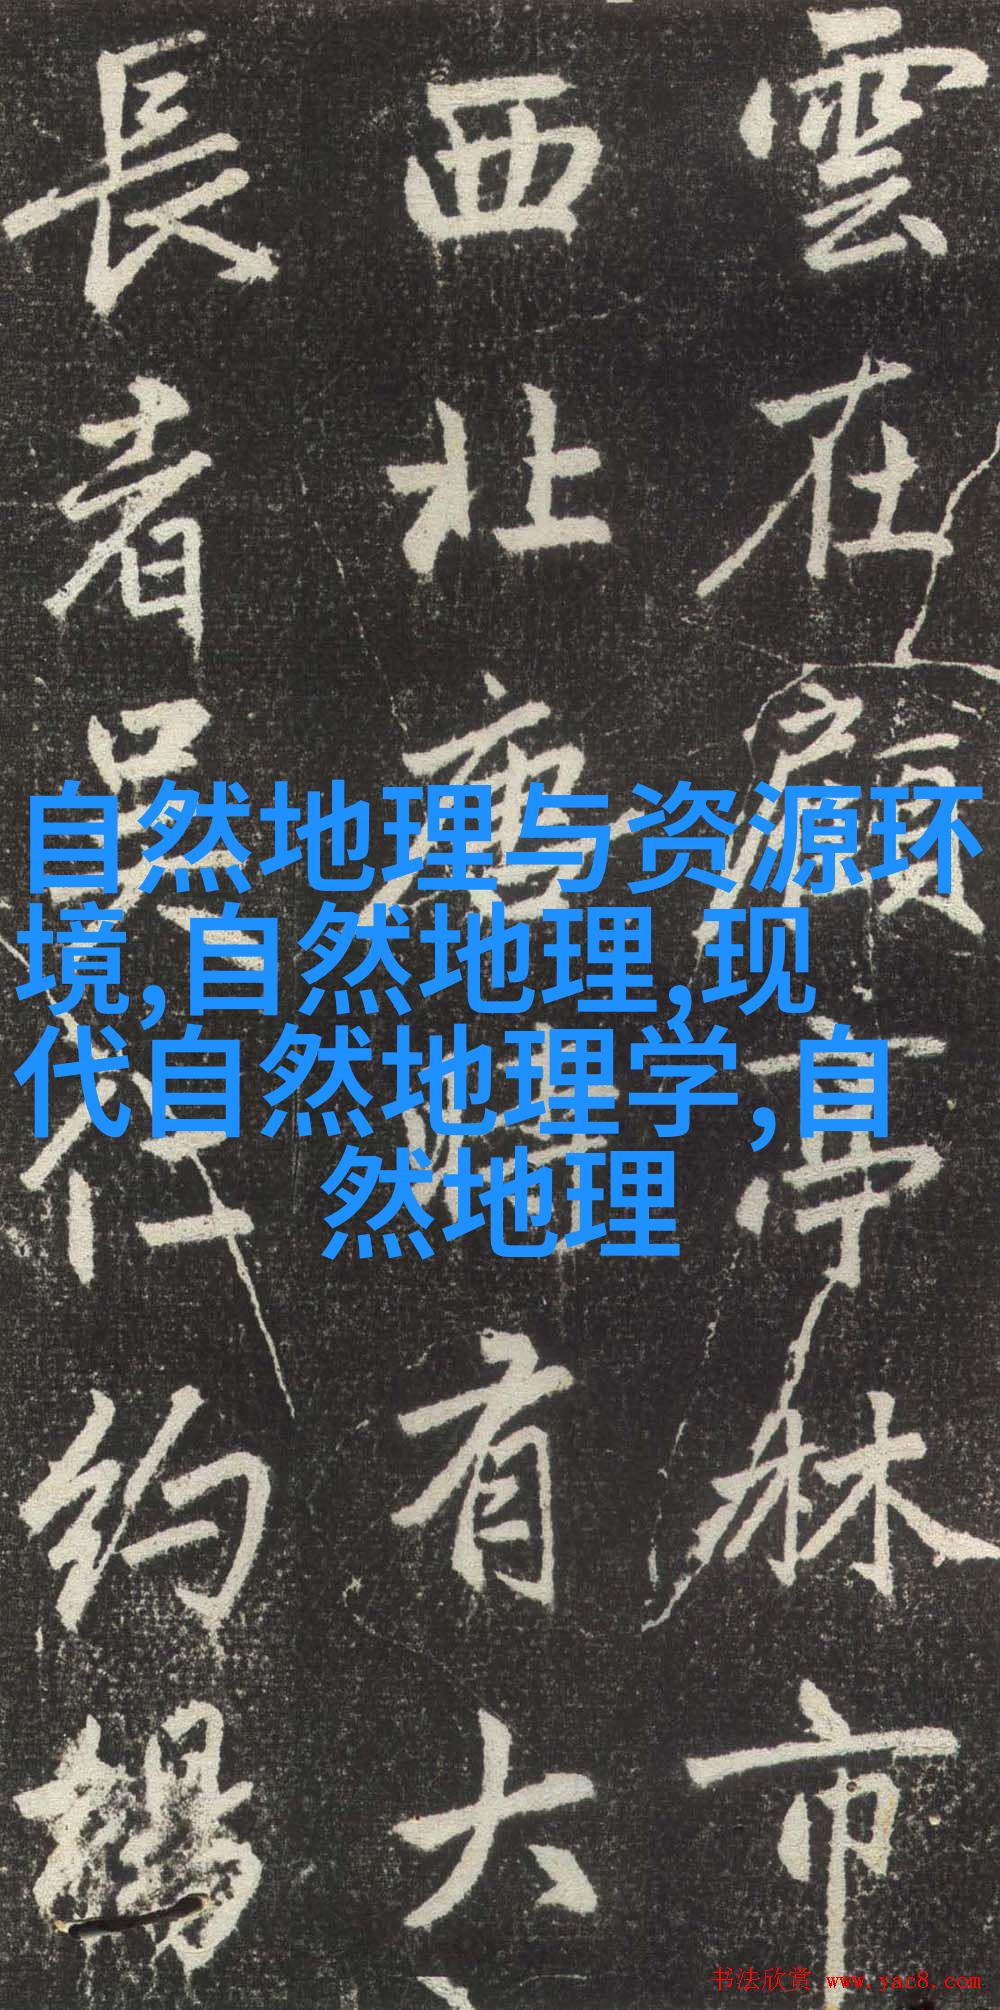 雲在顧亭林市
西北有大
長者吳約
自然地理与资源环
境,自然地理,现
代自然地理学,自
然地理
书法欣赏 www.yac8.com